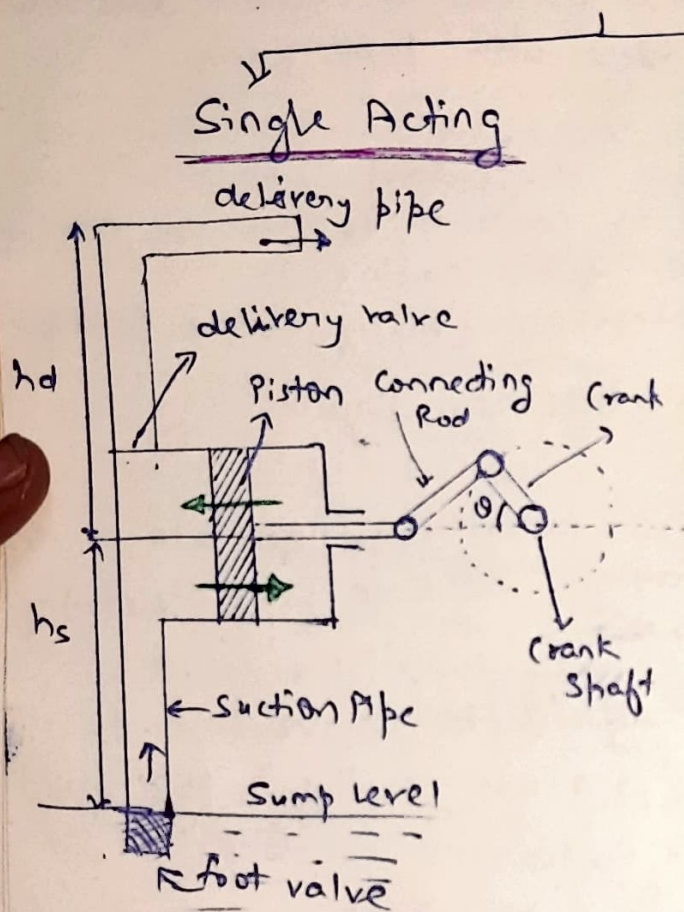 Single Acting
delivery pipe
delivery valve
hd
Piston
Connecting
Rod
Crank
θ
hs
Crank
Shaft
Suction Pipe
Sump Level
foot valve